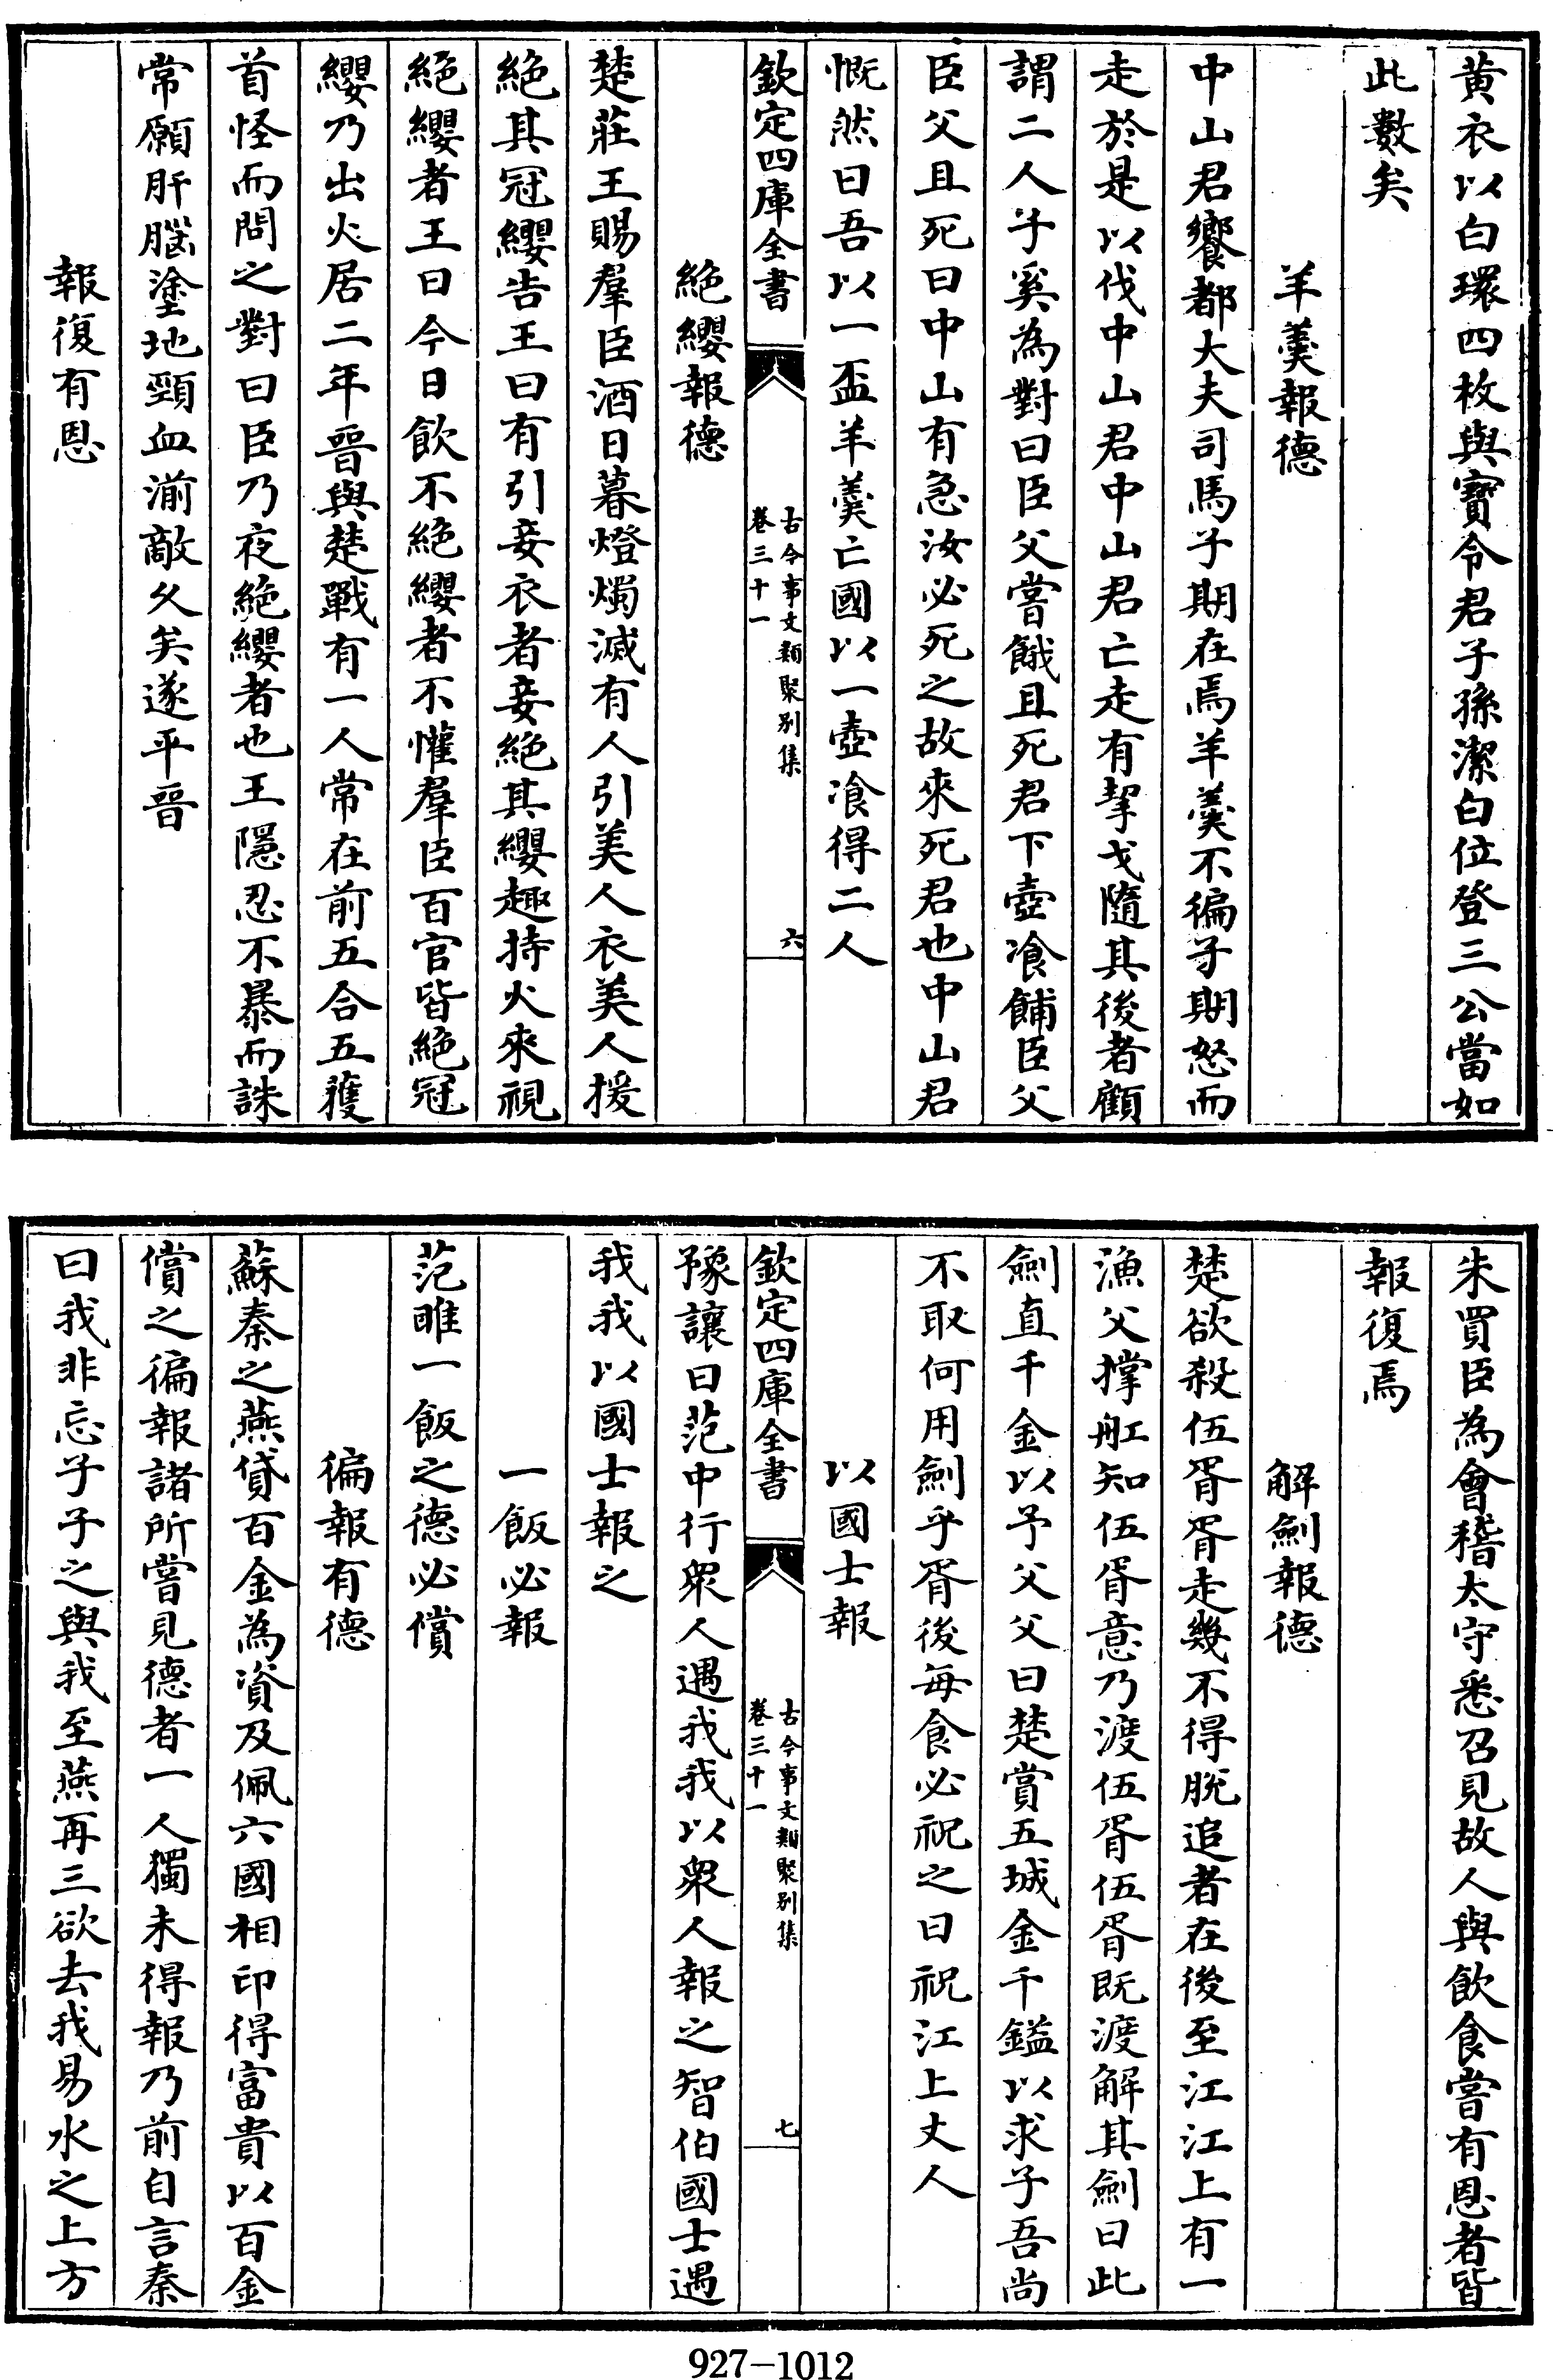 黄衣以白環四枚與寳令君子孫潔白位登三公當如
此數矣
羊羮報德
中山君饗都大夫司馬子期在焉羊羮不徧子期怒而
走於是以伐中山君中山君亡走有挈戈隨其後者顧
謂二人子奚為對曰臣父嘗餓且死君下壺飡餔臣父
臣父且死曰中山有急汝必死之故來死君也中山君
慨然曰吾以一盃羊羮亡國以一壺飡得二人
欽定四庫全書
古今事文類聚别集
卷三十一
六
絶纓報德
楚莊王賜羣臣酒日暮燈燭滅有人引美人衣美人援
絶其冠纓告王曰有引妾衣者妾絶其纓趣持火來視
絶纓者王曰今日飲不絶纓者不懽羣臣百官皆絶冠
纓乃出火居二年晉與楚戰有一人常在前五合五獲
首怪而問之對曰臣乃夜絶纓者也王隱忍不暴而誅
常願肝腦塗地頸血湔敵久矣遂平晉
報復有恩
朱買臣為會稽太守悉召見故人與飲食嘗有恩者皆
報復焉
解劍報德
楚欲殺伍胥胥走幾不得脱追者在後至江江上有一
漁父撑舡知伍胥意乃渡伍胥伍胥既渡解其劍曰此
劍直千金以予父父曰楚賞五城金千鎰以求子吾尚
不取何用劍乎胥後每食必祝之曰祝江上丈人
以國士報
欽定四庫全書
古今事文類聚别集
卷三十一
七
豫讓曰范中行衆人遇我我以衆人報之智伯國士遇
我我以國士報之
一飯必報
范雎一飯之德必償
徧報有德
蘇秦之燕貸百金為資及佩六國相印得富貴以百金
償之徧報諸所嘗見德者一人獨未得報乃前自言秦
曰我非忘子子之與我至燕再三欲去我易水之上方
927-1012